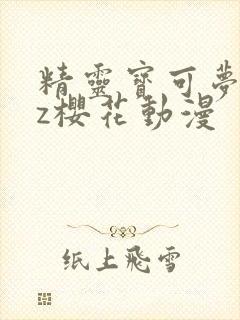 精靈寶可夢
z櫻花動漫
纸上飛雪